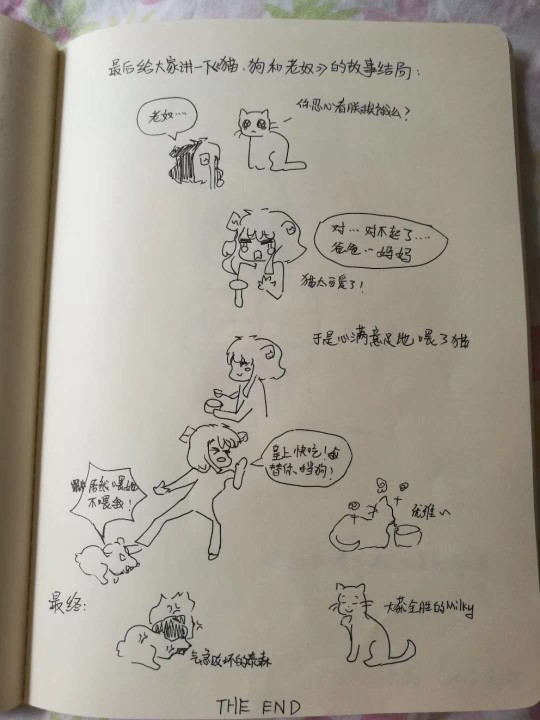 最后给大家讲一下《猫、狗和老奴》的故事结局：
老奴…
你忍心看朕挨饿么？
对…对不起了…
爸爸…妈妈
猫太可爱了！
于是心满意足地喂了猫
皇上快吃！由
替你、挡狗！
居然喂她
不喂我！
优雅~
最终：
气急败坏的泰森
大获全胜的Milky
THE END